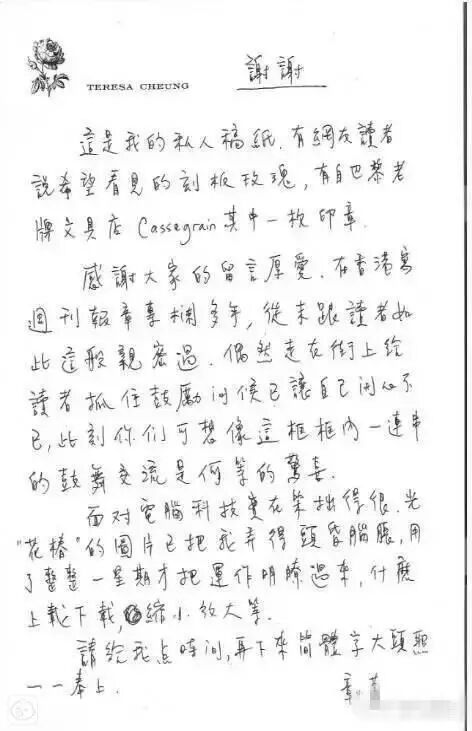 TERESA CHEUNG
謝謝
這是我的私人稿紙. 有網友讀者
說希望看見的刻板玫瑰, 有自巴黎老
牌文具店 Cassegrain 其中一枚印章.
感謝大家的留言厚愛. 在香港寫
週刊報章專欄多年, 從未跟讀者如
此這般親密過. 偶然走在街上給
讀者抓住鼓勵问候已讓自己闲心不
已, 此刻你们可想像這框框內一連串
的鼓舞交流是何等的驚喜.
面对電腦科技實在笨拙得很. 光
"花樁"的圖片已把我弄得頭昏腦脹, 用
了整整一星期才把運作明瞭過來, 什麼
上載下載, 縮小放大等.
請給我点時间, 再下來简體字大頭熙
一一奉上.
章